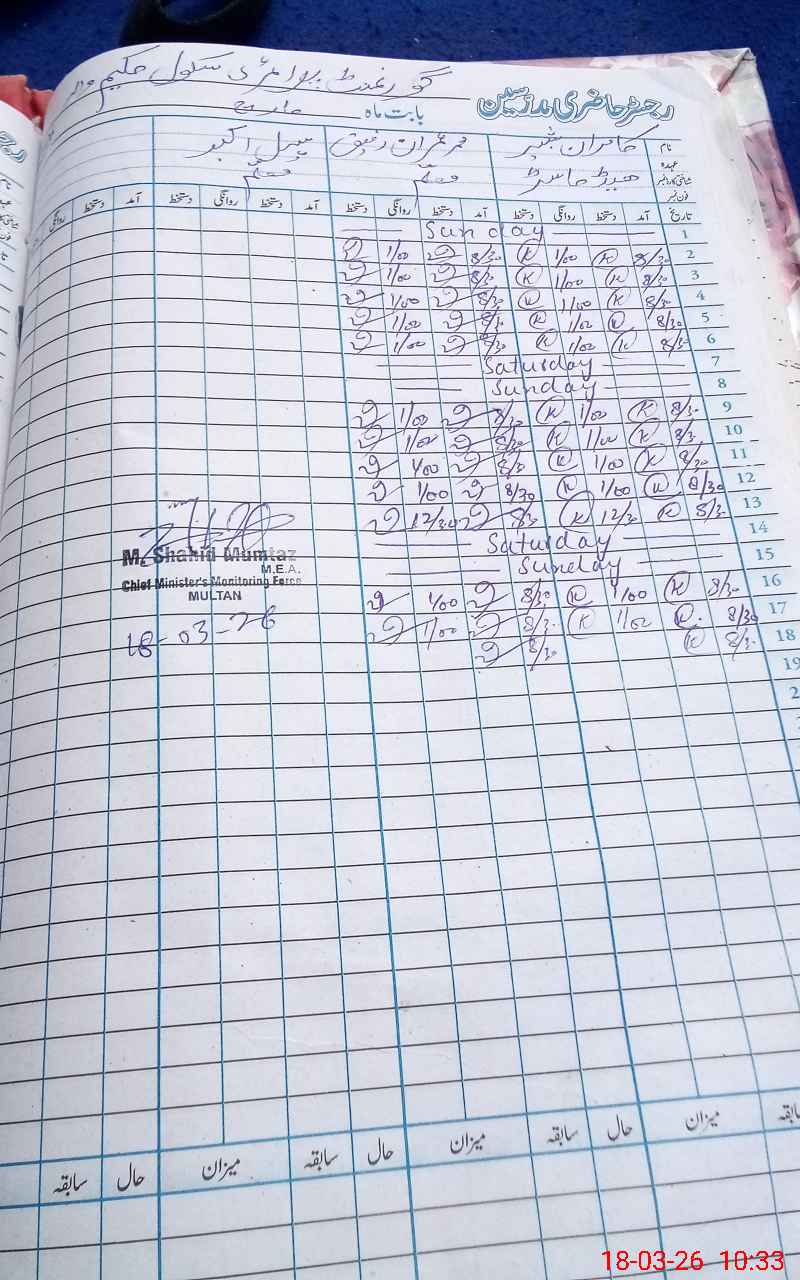 گورنمنٹ پرائمری سکول حکیم والا
رجسٹر حاضری مدرسین بابت ماہ مارچ
نام کامران شبیر محمد عمران رفیق سہیل اکبر
عہدہ ہیڈ ماسٹر معلم معلم
شناختی کارڈ نمبر
فون نمبر
تاریخ آمد دستخط روانگی دستخط آمد دستخط روانگی دستخط آمد دستخط روانگی دستخط آمد دستخط روانگی
1 Sunday
2 8/30 K 1/00 K 8/30 1/00
3 8/30 K 1/00 K 8/30 1/00
4 8/30 K 1/00 K 8/30 1/00
5 8/30 K 1/00 K 8/30 1/00
6 8/30 K 1/00 K 8/30 1/00
7 Saturday
8 Sunday
9 8/30 K 1/00 K 8/30 1/00
10 8/30 K 1/00 K 8/30 1/00
11 8/30 K 1/00 K 8/30 1/00
12 8/30 K 1/00 K 8/30 1/00
13 8/30 K 12/30 K 8/30 12/30
14 Saturday
15 Sunday
16 8/30 K 1/00 K 8/30 1/00
17 8/30 K 1/00 K 8/30 1/00
18 8/30 K 8/30
19
M. Shahid Mumtaz
M.E.A.
Chief Minister's Monitoring Force
MULTAN
18-03-26
میزان حال سابقہ میزان حال سابقہ میزان حال سابقہ
18-03-26 10:33